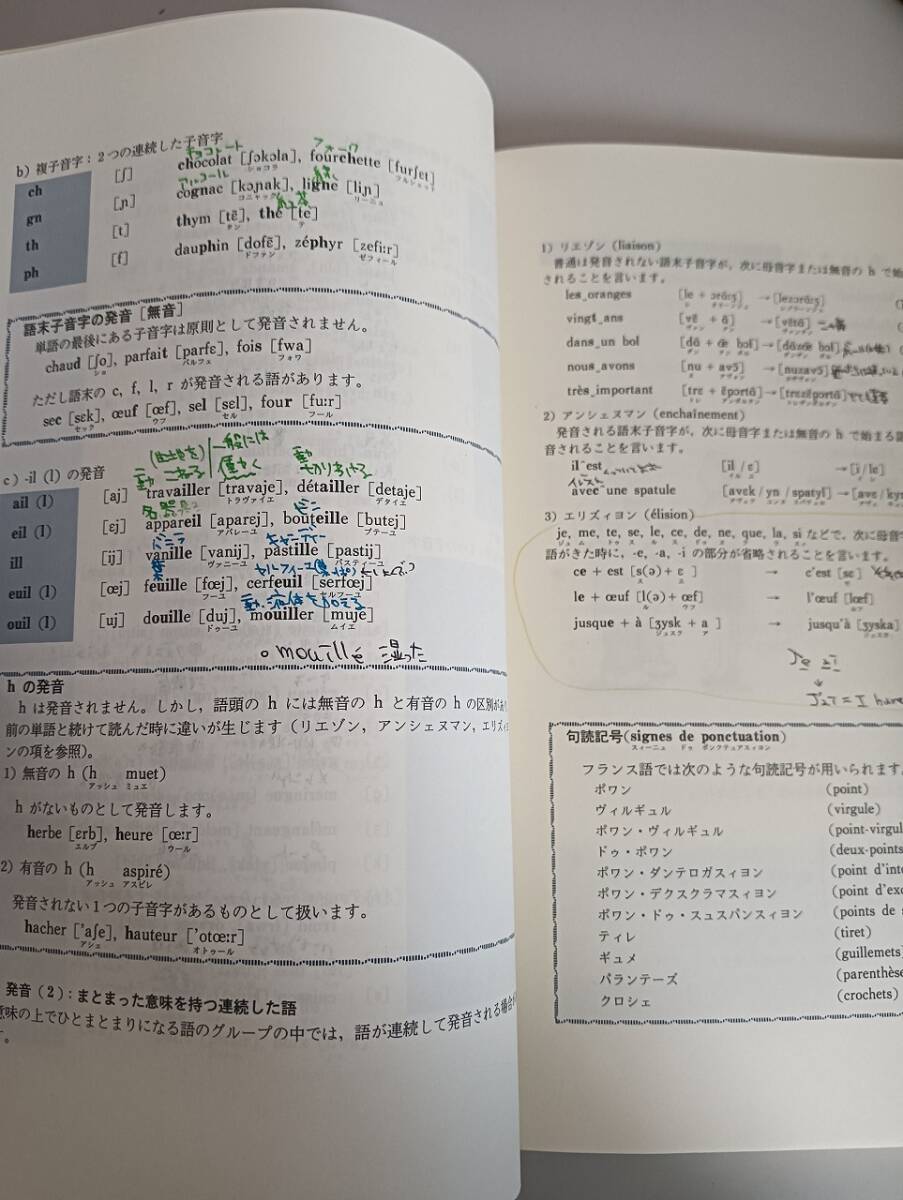 b) 複子音字：2つの連続した子音字
チョコレート フォーク
ch [ʃ] chocolat [ʃɔkɔla], fourchette [furʃɛt]
ショコラ フルシェット
アルコール
gn [ɲ] cognac [kɔɲak], ligne [liɲ]
コニャック リーニュ
th [t] thym [tɛ̃], thé [te]
タン テ
ph [f] dauphin [dofɛ̃], zéphyr [zefi:r]
ドファン ゼフィール
語末子音字の発音［無音］
単語の最後にある子音字は原則として発音されません。
chaud [ʃo], parfait [parfɛ], fois [fwa]
ショ パルフェ フォワ
ただし語末の c, f, l, r が発音される語があります。
sec [sɛk], œuf [œf], sel [sɛl], four [fu:r]
セック ウフ セル フール
c) -il (l) の発音
一般には
動 こねる 働く 動 切りわける
ail (l) [aj] travailler [travaje], détailler [detaje]
トラヴァイエ デタイエ
eil (l) [ɛj] appareil [aparɛj], bouteille [butɛj]
アパレーユ ブテーユ
バニラ キャンディー
ill [ij] vanille [vanij], pastille [pastij]
ヴァニーユ パスティーユ
葉
euil (l) [œj] feuille [fœj], cerfeuil [sɛrfœj]
フーユ セルフーユ
動.液体を加える
ouil (l) [uj] douille [duj], mouiller [muje]
ドゥーユ ムイエ
○ mouillé 湿った
h の発音
h は発音されません。しかし，語頭の h には無音の h と有音の h の区別が
前の単語と続けて読んだ時に違いが生じます（リエゾン，アンシェヌマン，エリズィヨ
ンの項を参照）。
1) 無音の h (h muet)
アッシュ ミュエ
h がないものとして発音します。
herbe [ɛrb], heure [œ:r]
エルブ ウール
2) 有音の h (h aspiré)
アッシュ アスピレ
発音されない1つの子音字があるものとして扱います。
hacher ['aʃe], hauteur ['otœ:r]
アシェ オトゥール
発音（2）：まとまった意味を持つ連続した語
意味の上でひとまとまりになる語のグループの中では，語が連続して発音される場合
す。
1) リエゾン (liaison)
普通は発音されない語末子音字が，次に母音字または無音の h で始
されることを言います。
les oranges [le + ɔrɑ̃:ʒ] →[lezɔrɑ̃:ʒ]
vingt ans [vɛ̃ + ɑ̃] →[vɛ̃tɑ̃]
dans un bol [dɑ̃ + œ̃ bɔl] →[dɑ̃zœ̃ bɔl]
nous avons [nu + avɔ̃] →[nuzavɔ̃]
très important [trɛ + ɛ̃pɔrtɑ̃] →[trɛzɛ̃pɔrtɑ̃]
2) アンシェヌマン (enchaînement)
発音される語末子音字が，次に母音字または無音の h で始まる語
音されることを言います。
il est [il / ɛ] →[i/lɛ]
avec une spatule [avɛk / yn / spatyl] →[avɛ / kyn
3) エリズィヨン (élision)
je, me, te, se, le, ce, de, ne, que, la, si などで，次に母音字
ジュ ム トゥ ス ル ス ドゥ ヌ ク ラ スィ
語がきた時に，-e, -a, -i の部分が省略されることを言います。
ce + est [s(ə) + ɛ ] → c'est [sɛ]
le + œuf [l(ə) + œf] → l'œuf [lœf]
ル ウフ ルフ
jusque + à [ʒysk + a ] → jusqu'à [ʒyska]
ジュスク ア ジュスカ
Je ai
↓
J'ai = I have
句読記号(signes de ponctuation)
スィーニュ ドゥ ポンクテュアスィヨン
フランス語では次のような句読記号が用いられます。
ポワン (point)
ヴィルギュル (virgule)
ポワン・ヴィルギュル (point-virgul
ドゥ・ポワン (deux-points
ポワン・ダンテロガスィヨン (point d'inte
ポワン・デクスクラマスィヨン (point d'exc
ポワン・ドゥ・スュスパンスィヨン (points de s
ティレ (tiret)
ギュメ (guillemets)
パランテーズ (parenthèse
クロシェ (crochets)